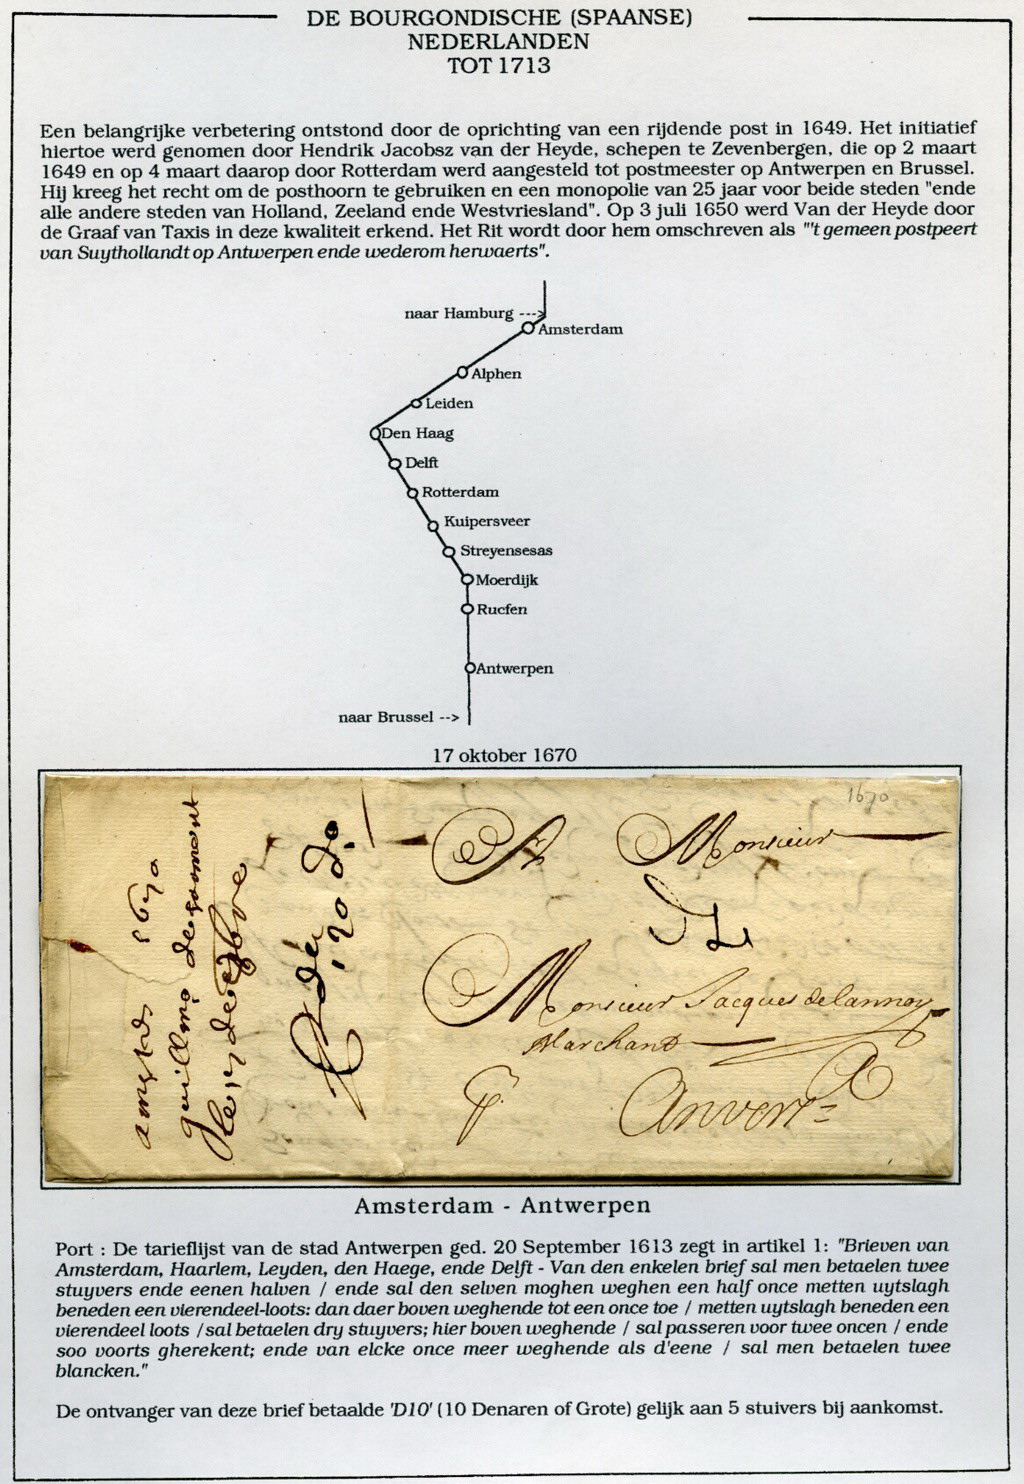 DE BOURGONDISCHE (SPAANSE)
NEDERLANDEN
TOT 1713
Een belangrijke verbetering ontstond door de oprichting van een rijdende post in 1649. Het initiatief
hiertoe werd genomen door Hendrik Jacobsz van der Heyde, schepen te Zevenbergen, die op 2 maart
1649 en op 4 maart daarop door Rotterdam werd aangesteld tot postmeester op Antwerpen en Brussel.
Hij kreeg het recht om de posthoorn te gebruiken en een monopolie van 25 jaar voor beide steden "ende
alle andere steden van Holland, Zeeland ende Westvriesland". Op 3 juli 1650 werd Van der Heyde door
de Graaf van Taxis in deze kwaliteit erkend. Het Rit wordt door hem omschreven als "'t gemeen postpeert
van Suythollandt op Antwerpen ende wederom herwaerts".
naar Hamburg --->
Amsterdam
Alphen
Leiden
Den Haag
Delft
Rotterdam
Kuipersveer
Streyensesas
Moerdijk
Rucfen
Antwerpen
naar Brussel -->
17 oktober 1670
1670
A Monsieur
Monsieur Jacques delannoy
Marchand
Anvers
Amsterdam - Antwerpen
Port : De tarieflijst van de stad Antwerpen ged. 20 September 1613 zegt in artikel 1: "Brieven van
Amsterdam, Haarlem, Leyden, den Haege, ende Delft - Van den enkelen brief sal men betaelen twee
stuyvers ende eenen halven / ende sal den selven moghen weghen een half once metten uytslagh
beneden een vierendeel-loots: dan daer boven weghende tot een once toe / metten uytslagh beneden een
vierendeel loots /sal betaelen dry stuyvers; hier boven weghende / sal passeren voor twee oncen / ende
soo voorts gherekent; ende van elcke once meer weghende als d'eene / sal men betaelen twee
blancken."
De ontvanger van deze brief betaalde 'D10' (10 Denaren of Grote) gelijk aan 5 stuivers bij aankomst.